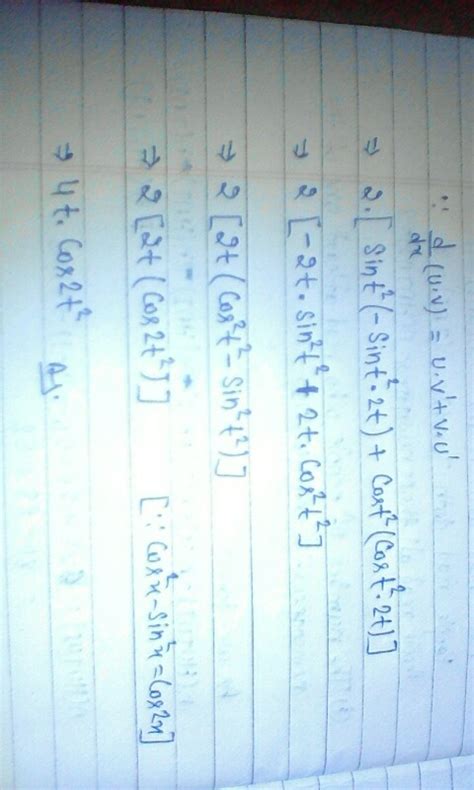 ∵ d/dx (u·v) = u·v' + v·u'
⇒ 2·[Sint²(-Sint²·2t) + Cost²(Cost²·2t)]
⇒ 2[-2t·Sin²t² + 2t·Cos²t²]
⇒ 2[2t(Cos²t² - Sin²t²)]
⇒ 2[2t(Cos2t²)] [∵ Cos²x - Sin²x = Cos2x]
⇒ 4t·Cos2t²